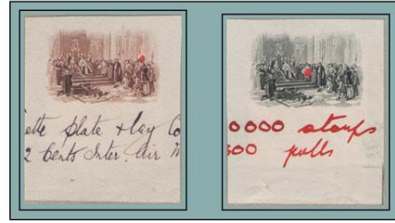 ette Plate & lay Co
2 Cents Inter. Air
0000 stamps
500 pulls